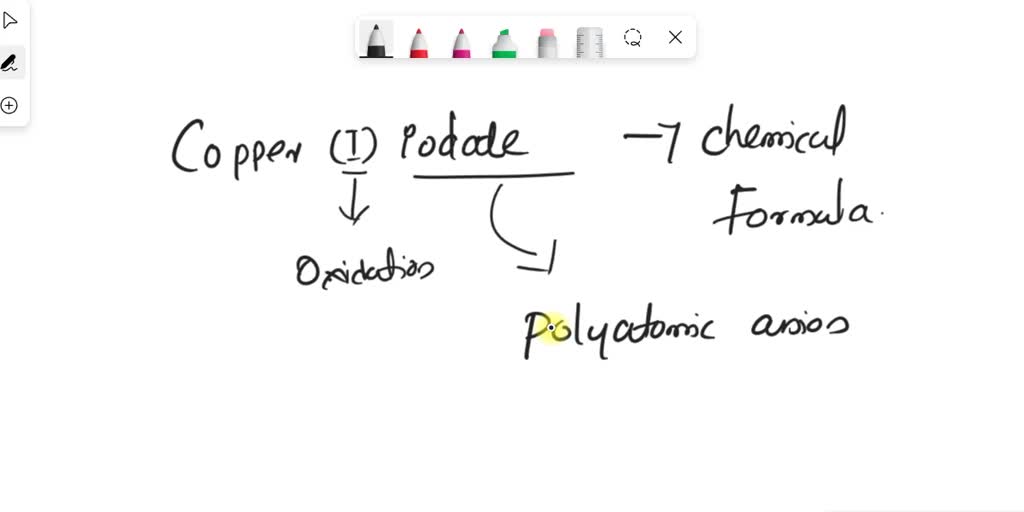 Copper (I) Iodate → Chemical
Formula.
↓
Oxidation
Polyatomic anion